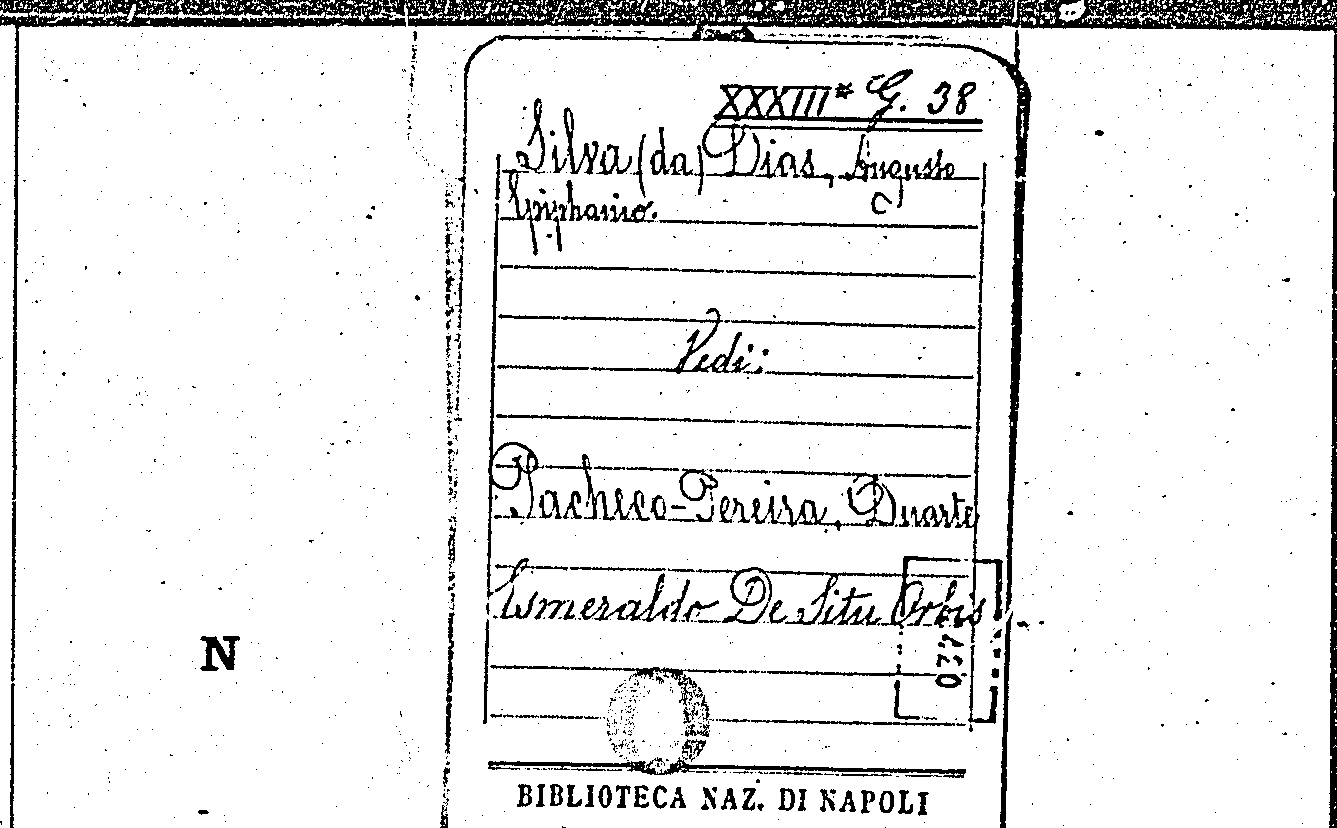 XXXIII* G. 38
Silva (da) Dias, Augusto
Epiphanio.
Vedi:
Pacheco-Pereira, Duarte
Esmeraldo De Situ Orbis
N
BIBLIOTECA NAZ. DI NAPOLI